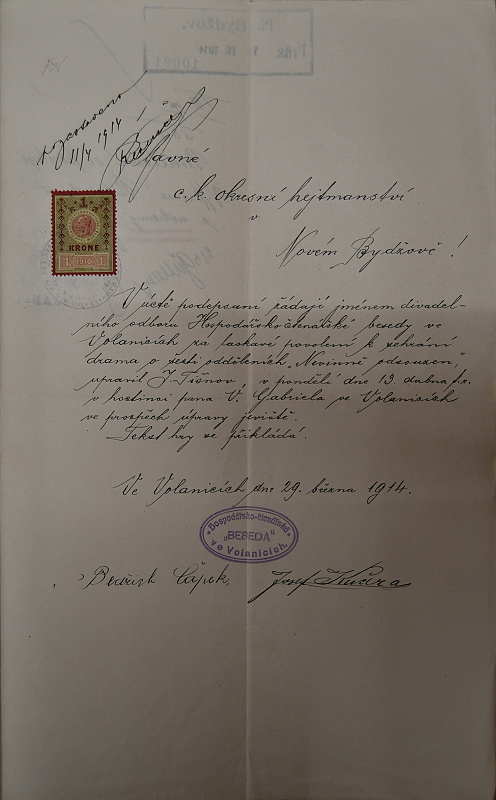 11/4 1914
Slavné
c. k. okresní hejtmanství
v
Novém Bydžově!
1
KRONE
1 1910 1
V úctě podepsaní žádají jménem divadel-
ního odboru Hospodářsko čtenářské besedy ve
Volanicích za laskavé povolení k sehrání
drama o šesti odděleních „Nevinně odsouzen“,
upravil J. Tišnov, v pondělí dne 13. dubna t.r.
v hostinci pana V. Gabriela ve Volanicích
ve prospěch úpravy jeviště.
Tekst hry se přikládá.
Ve Volanicích dne 29. března 1914.
Hospodářsko-čtenářská
„BESEDA“
ve Volanicích.
Bedřich Čápek, Josef Kučera